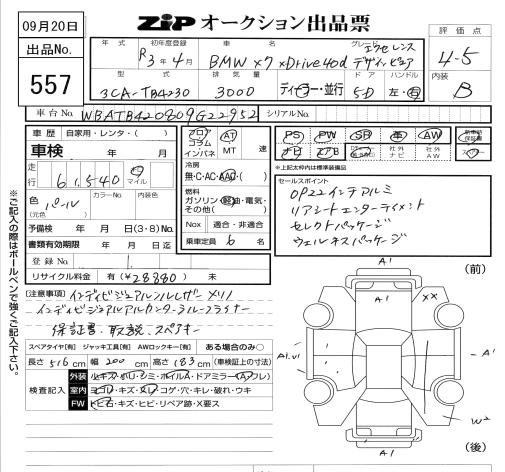 09月20日
ZIP オークション出品票
出品No.
557
年式 初年度登録 車名 グレード
R3年4月 BMW X7 xDrive40d エクセレンス
デザインピュア
評価点
4.5
内装
B
型式 排気量 ドア ハンドル
3CA-TB4230 3000 ディーラー・並行 5D 左・右
車台No. WBATB420809G22952 シリアルNo.
車歴 自家用・レンタ( )
車検 年 月
走行 61,540 キロ マイル
色 パール (元色) カラーNo. 内装色
予備検 年 月 日(3・8)No.
書類有効期限 年 月 日迄
登録No.
リサイクル料金 有(¥28880) 未
フロア コラム インパネ AT MT 速
冷房 無・C・AC・AAC・( )
燃料 ガソリン・軽油・電気・その他( )
Nox 適合・非適合
乗車定員 6 名
PS PW SR 革 AW 新車時保証書
ナビ エアB 社外ナビ 社外AW
*上記太枠内は標準装備品
セールスポイント
OP22インテアルミ
リアシートエンターテイメント
セレクトパッケージ
ウェルネスパッケージ
[注意事項] インディビジュアルフルレザーメリノ
インディビジュアルアルカンターラルーフライナー
保証書・取説・スペアキー
スペアタイヤ[有] ジャッキ工具[有] AWロックキー[有] ある場合のみ○
長さ 516 cm 幅 200 cm 高さ 183 cm (車検証上の寸法)
検査記入
外装 ルキズ・ホリ・シミ・ホイルA・ドアミラー(A・ワレ)
室内 ヨゴレ・キズ・スレ・コゲ・穴・キレ・破れ・ウキ
FW トビ石・キズ・ヒビ・リペア跡・X要ス
※ご記入の際はボールペンで強くご記入下さい。
(前)
A1
A1
XX
A1.U1
A1
W2
A1
(後)